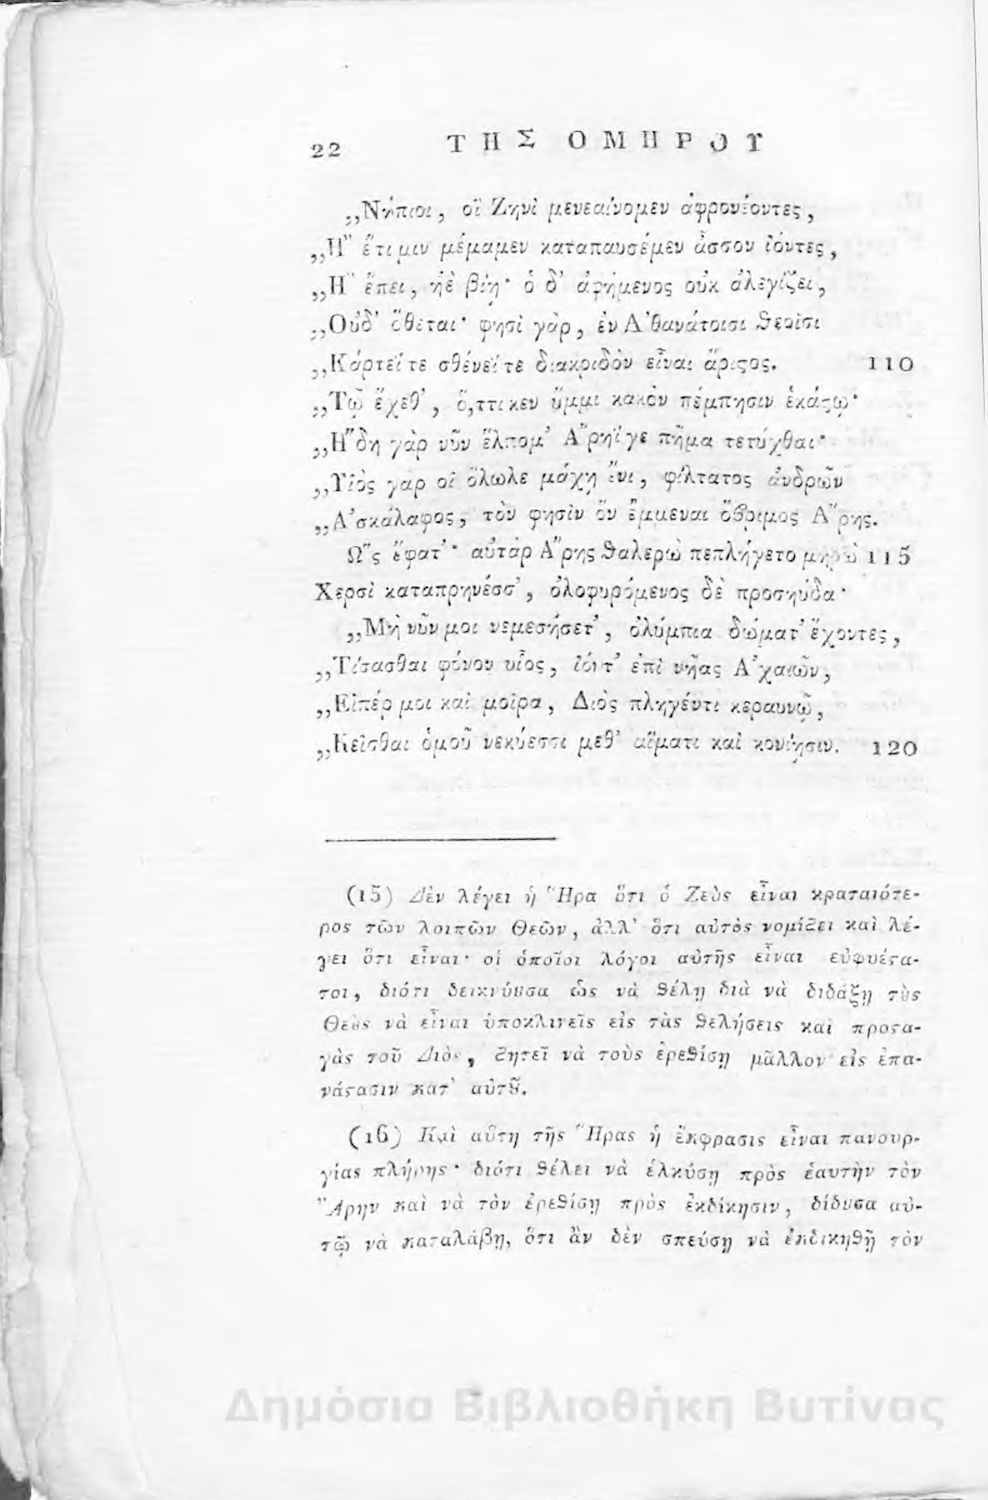 22 ΤΗΣ ΟΜΗΡΟΥ
„Νήπιοι, οἳ Ζηνὶ μενεαίνομεν ἀφρονέοντες,
„Η῎ ἔτι μιν μέμαμεν καταπαυσέμεν ἆσσον ἰόντες,
„Η῎ ἔπει, ἠὲ βίῃ· ὁ δ᾽ ἀφήμενος οὐκ ἀλεγίζει,
„Οὐδ᾽ ὄθεται· φησὶ γὰρ, ἐν Α᾽θανάτοισι ϑεοῖσι
„Κάρτεΐ τε σθένεΐ τε διακριδὸν εἶναι ἄριϛος. 110
„Τῷ ἔχεϑ᾽, ὅ,ττι κεν ὔμμι κακὸν πέμπῃσιν ἑκάϛῳ·
„Η῎δη γὰρ νῦν ἔλπομ᾽ Α῎ρηΐ γε πῆμα τετύχθαι·
„Υἱὸς γάρ οἱ ὄλωλε μάχῃ ἔνι, φίλτατος ἀνδρῶν
„Α᾽σκάλαφος, τὸν φησὶν ὃν ἔμμεναι ὄβριμος Α῎ρης.
Ω῝ς ἔφατ᾽· αὐτὰρ Α῎ρης ϑαλερὼ πεπλήγετο μηρὼ 115
Χερσὶ καταπρηνέσσ᾽, ὀλοφυρόμενος δὲ προσηύδα·
„Μὴ νῦν μοι νεμεσήσετ᾽, ὀλύμπια δώματ᾽ ἔχοντες,
„Τίσασθαι φόνον υἷος, ἰόντ᾽ ἐπὶ νῆας Α᾽χαιῶν,
„Εἴπέρ μοι καὶ μοῖρα, Διὸς πληγέντι κεραυνῷ,
„Κεῖσθαι ὁμοῦ νεκύεσσι μεϑ᾽ αἵματι καὶ κονίῃσιν. 120
(15) Δὲν λέγει ἡ Ἥρα ὅτι ὁ Ζεὺς εἶναι κραταιότε-
ρος τῶν λοιπῶν Θεῶν, ἀλλ᾽ ὅτι αὐτὸς νομίζει καὶ λέ-
γει ὅτι εἶναι· οἱ ὁποῖοι λόγοι αὐτῆς εἶναι εὐφυέϛα-
τοι, διότι δεικνύουσα ὡς νὰ ϑέλῃ διὰ νὰ διδάξῃ τὸς
Θεὸς νὰ εἶναι ὑποκλινεῖς εἰς τὰς ϑελήσεις καὶ προϛα-
γὰς τοῦ Διὸς, ζητεῖ νὰ τοὺς ἐρεϑίσῃ μᾶλλον εἰς ἐπα-
νάϛασιν κατ᾽ αὐτȣ͂.
(16) Καὶ αὕτη τῆς Ἥρας ἡ ἔκφρασις εἶναι πανουρ-
γίας πλήρης· διότι ϑέλει νὰ ἑλκύσῃ πρὸς ἑαυτὴν τὸν
Ἄρην καὶ νὰ τὸν ἐρεϑίσῃ πρὸς ἐκδίκησιν, δίδȣσα αὐ-
τῷ νὰ καταλάβῃ, ὅτι ἂν δὲν σπεύσῃ νὰ ἐκδικηϑῇ τὸν
Δημόσια Βιβλιοθήκη Βυτίνας